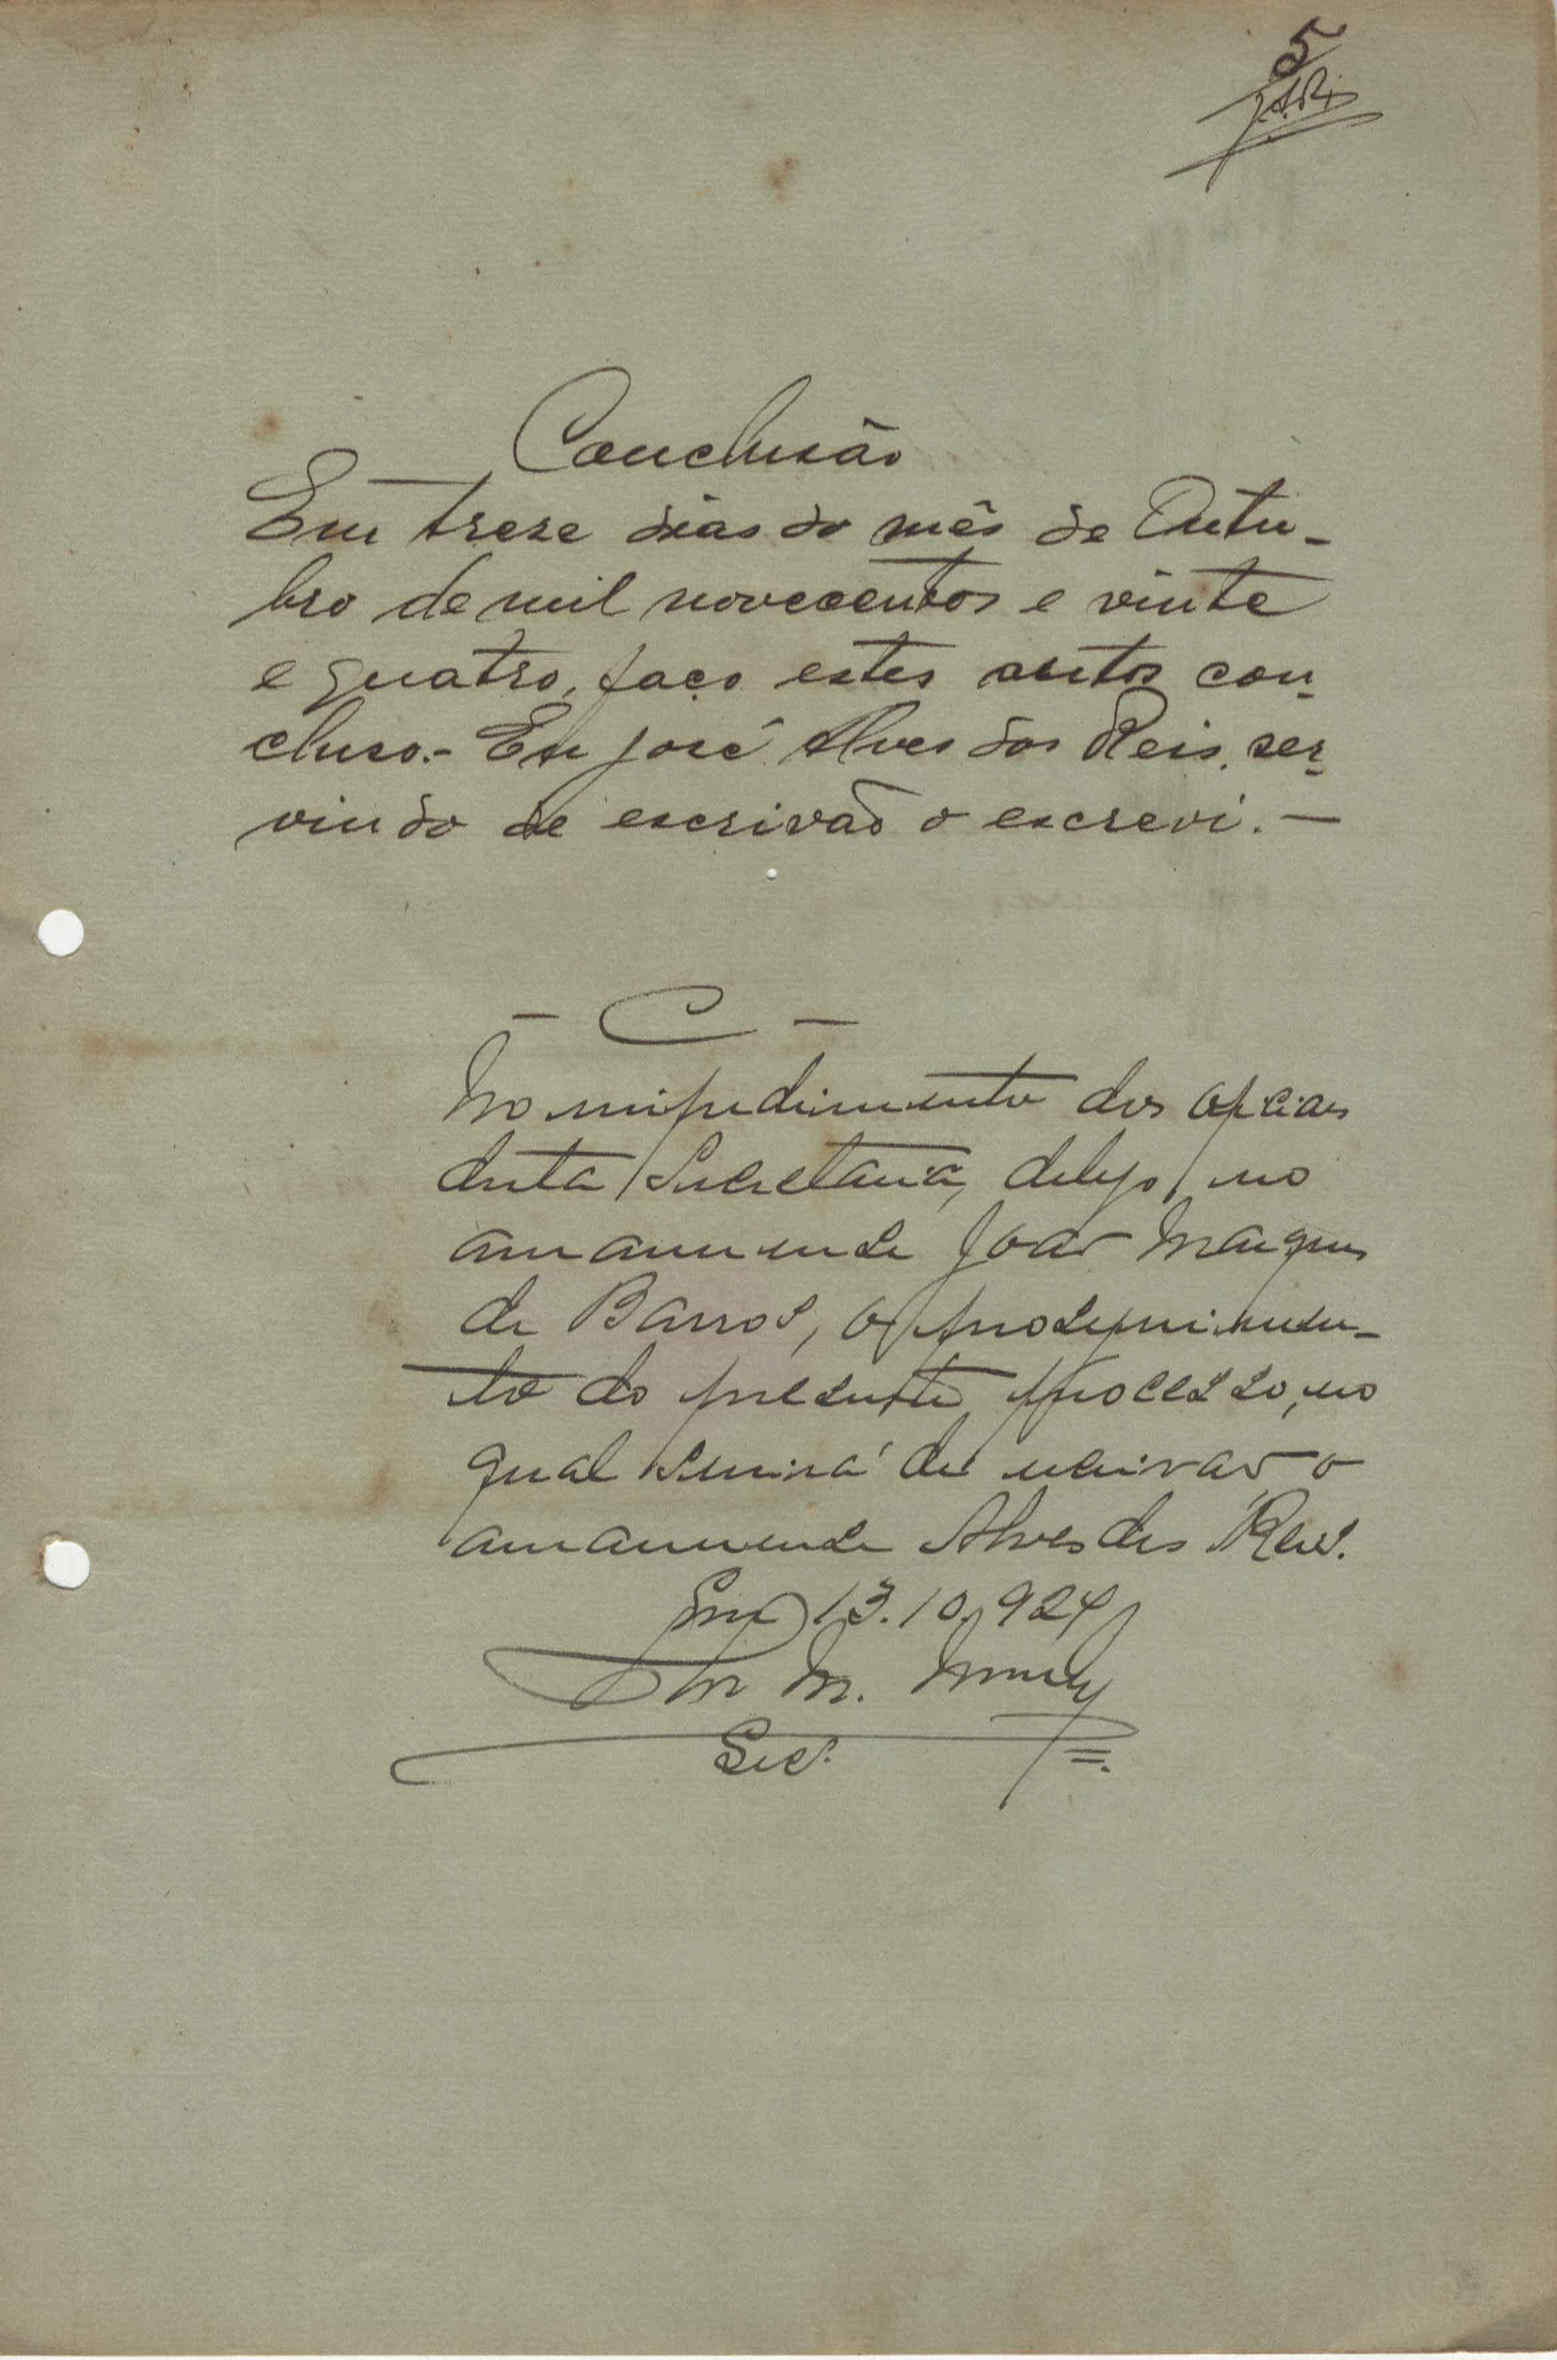 5
J.A.R.
Conclusão
Em treze dias do mês de Outu-
bro de mil novecentos e vinte
e quatro, faço estes autos con-
cluso.- Eu José Alves dos Reis, ser-
vindo de escrivão o escrevi. —
- C -
No impedimento dos officiaes
desta Secretaria, delego, no
amanuense João Marques
de Barros, o proseguimen-
to do presente processo, no
qual servirá de escrivão o
amanuense Alves dos Reis.
Em 13.10.924
M.
Sec.